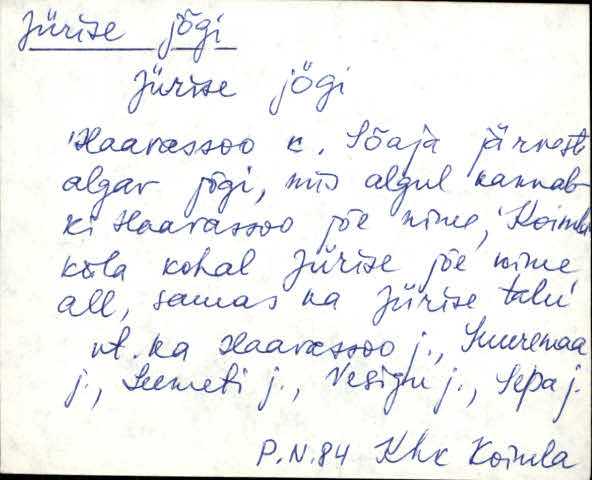 Jürise jõgi
Jürise jõgi
'Haarassoo k. Sõaja järvest
algav jõgi, mis algul kannab-
ki Haarassoo jõe nime, 'Koimla
küla kohal Jürise jõe nime
all, samas ka Jürise talu'
vt. ka Haarassoo j., Suuremaa
j., Leemeti j., Vesigu j., Sepa j.
P.N.84 Khk Koimla